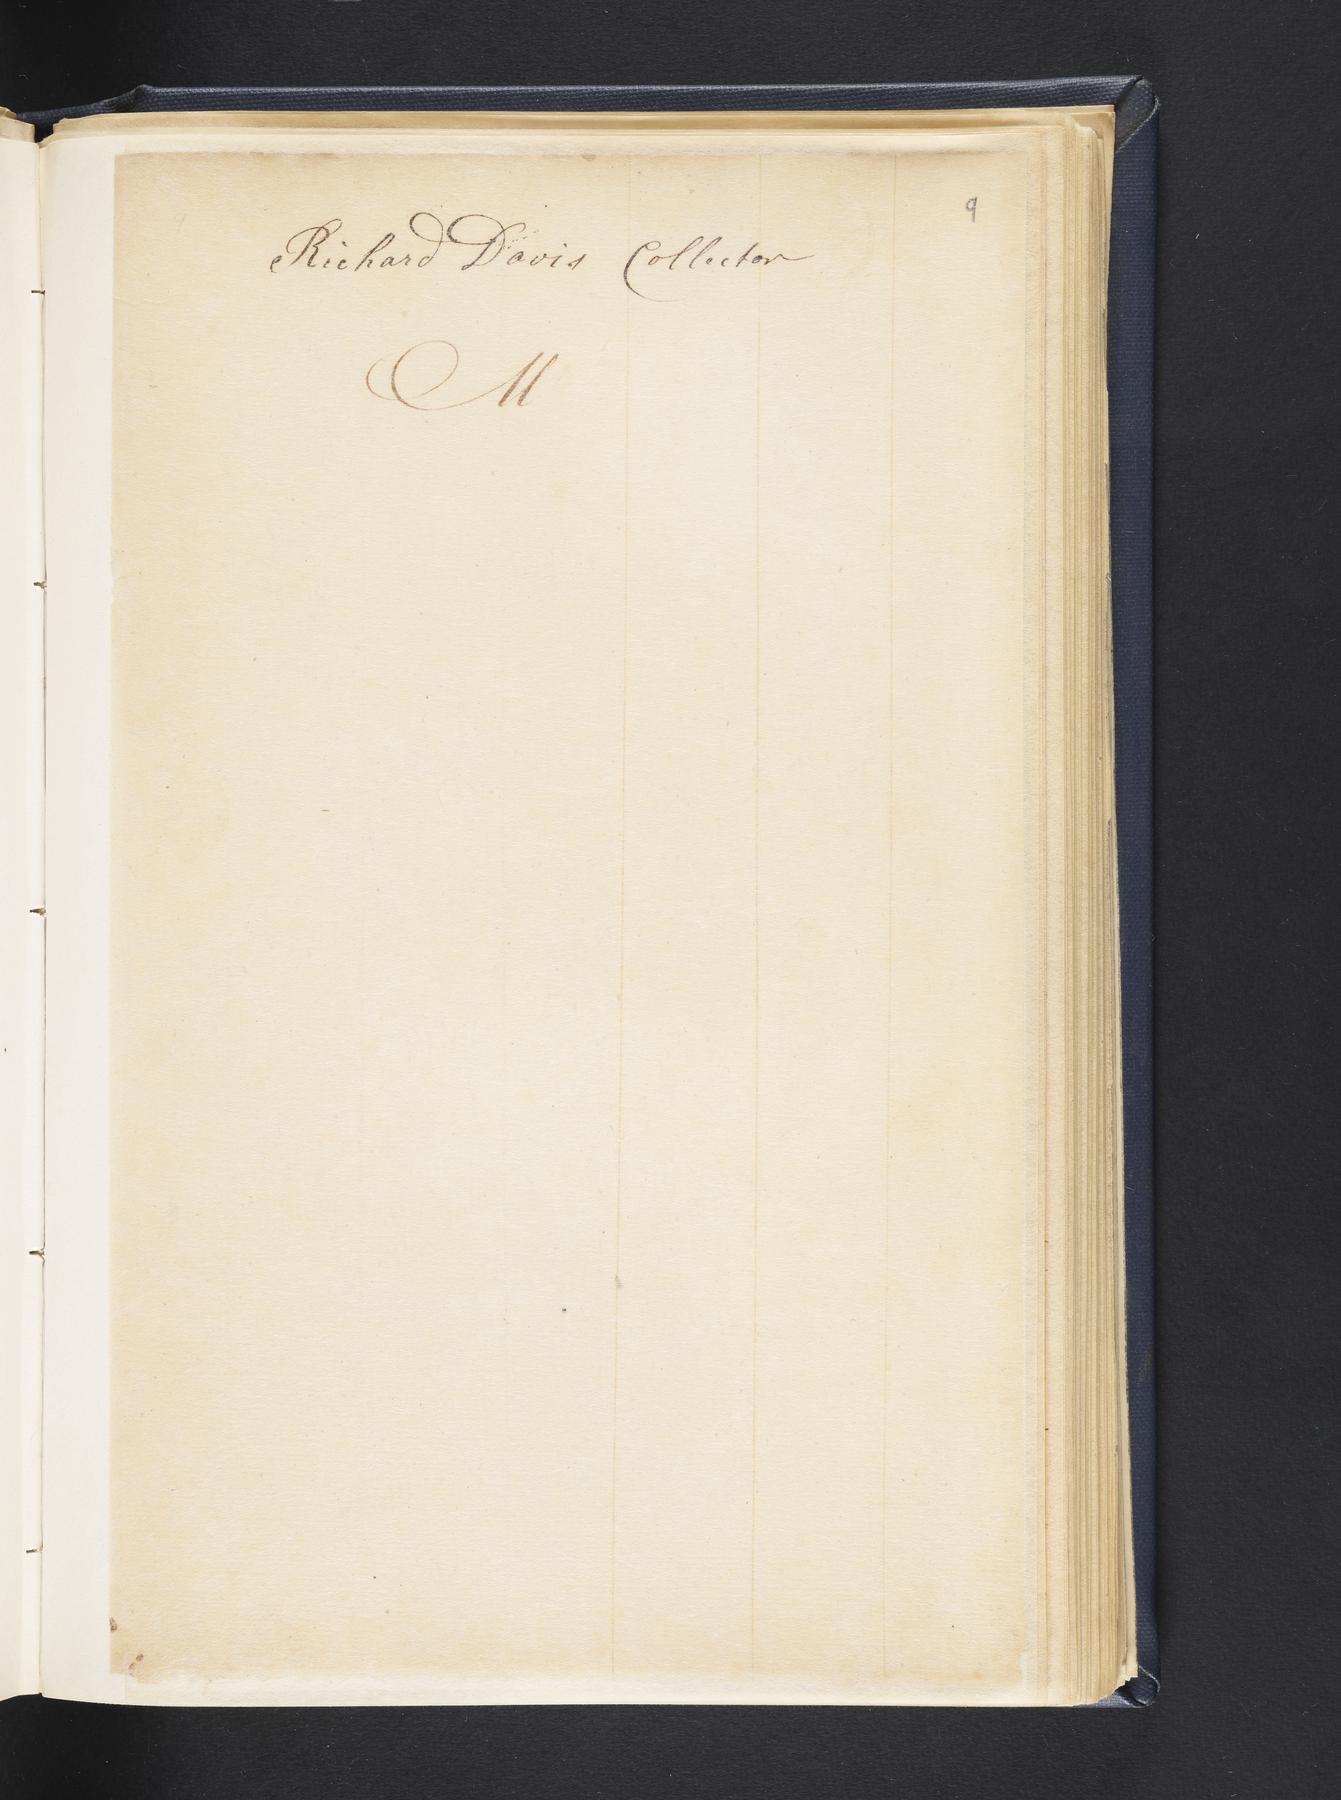 9
Richard Davis Collector
M